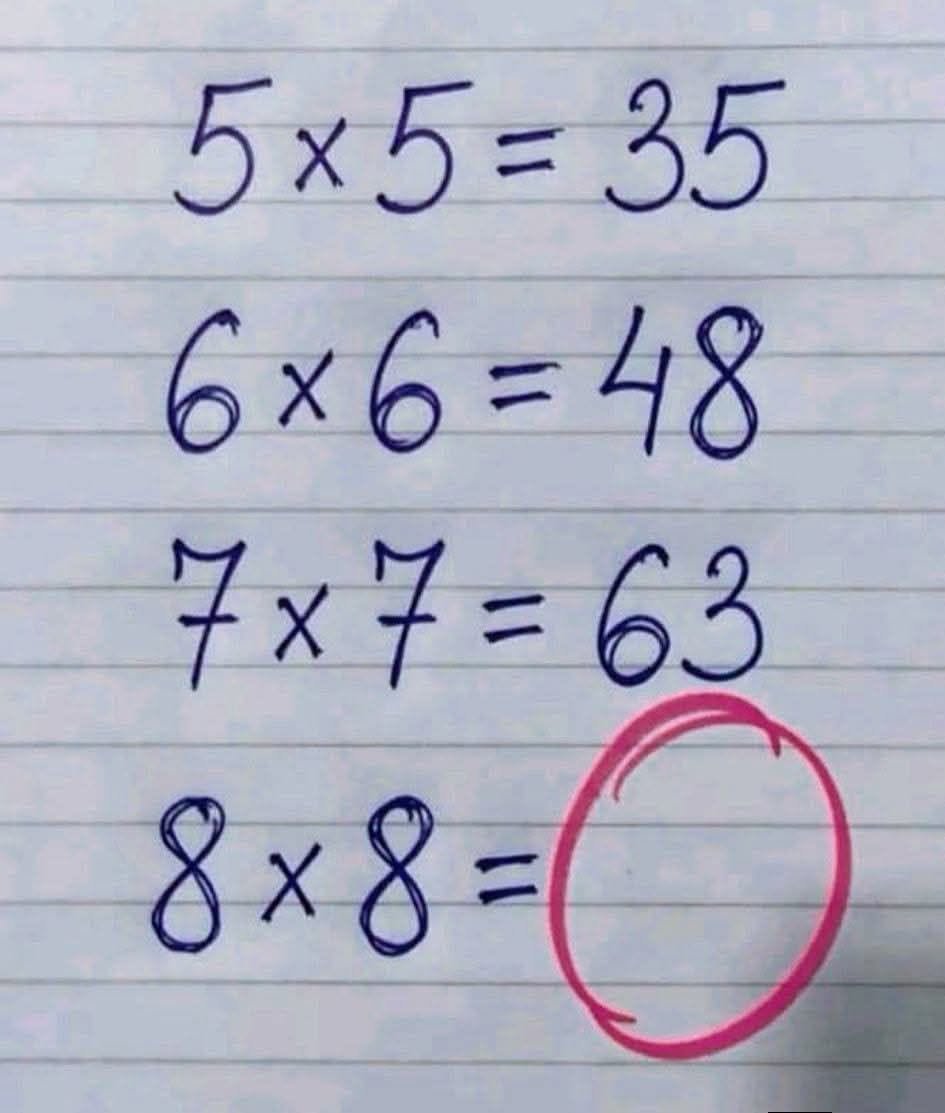 5 × 5 = 35
6 × 6 = 48
7 × 7 = 63
8 × 8 =